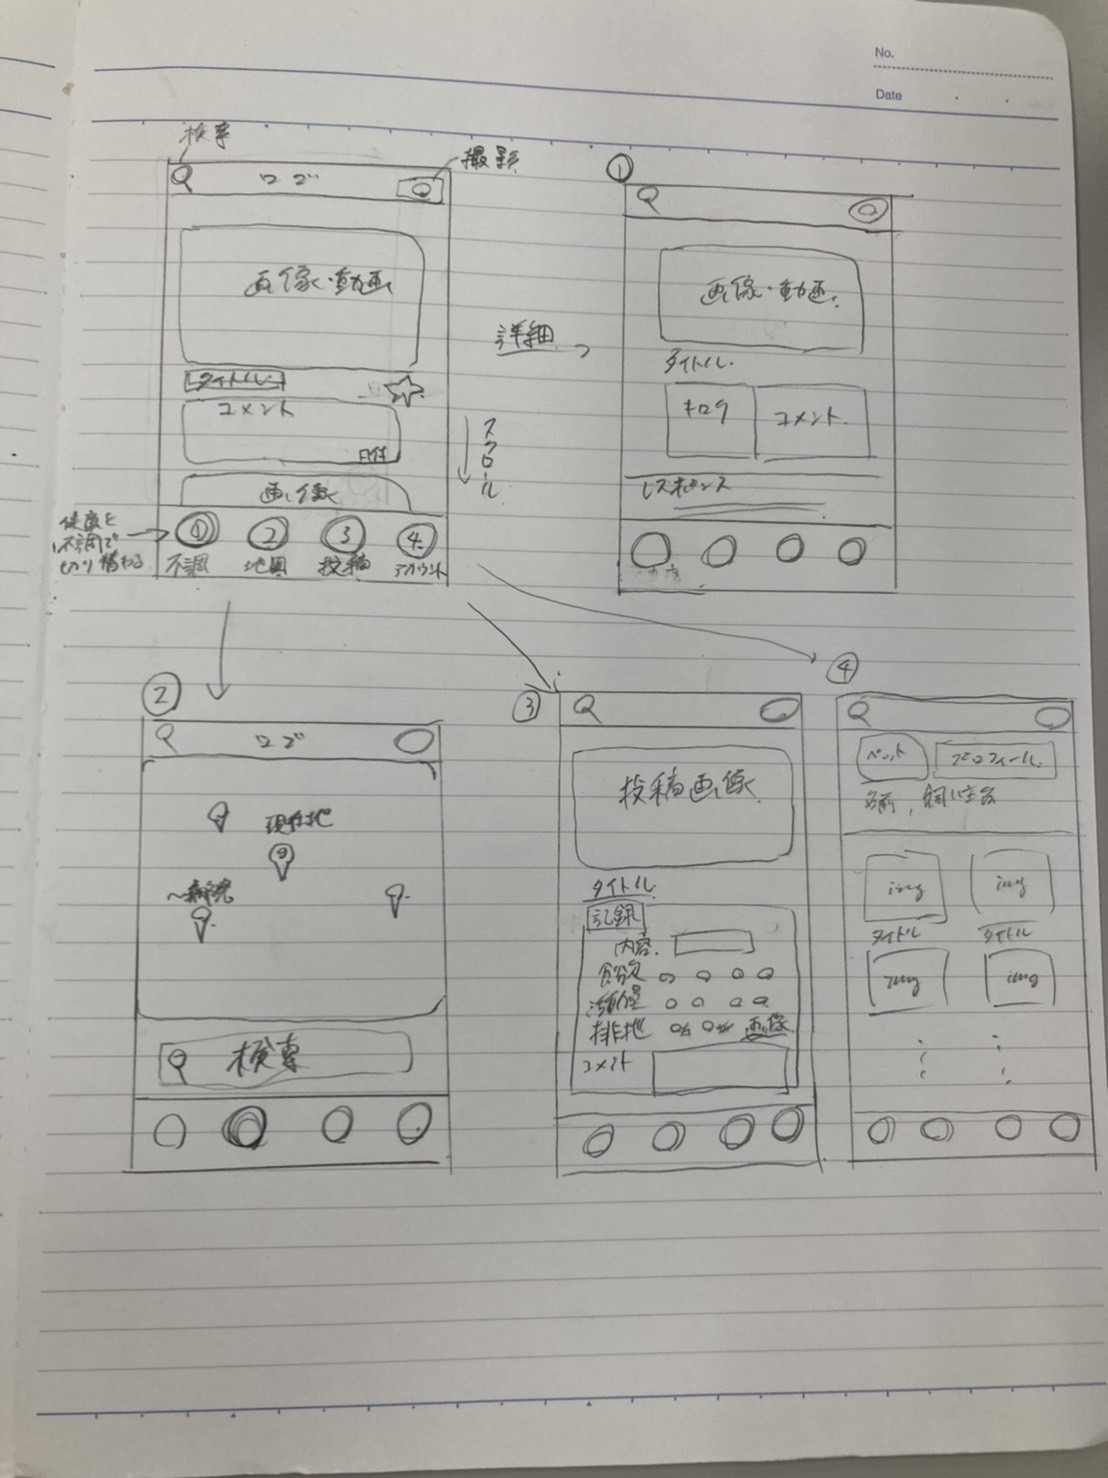 No.
Date
検索
撮影
ロゴ
画像・動画
タイトル
コメント
日付
画像
スクロール
健康と
不調で
切り替わる
① ② ③ ④
不調 地図 投稿 アカウント
詳細
①
画像・動画
タイトル
キロク コメント
レスポンス
②
ロゴ
現在地
〜病院
検索
③
投稿画像
タイトル
記録
内容
食欲
活動量
排地
画像
コメント
④
ペット プロフィール
名前, 飼い主名
img img
タイトル タイトル
img img